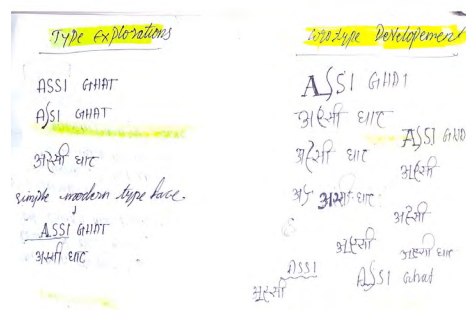 Type Explorations
ASSI GHAT
ASSI GHAT
अस्सी घाट
simple modern type face.
ASSI GHAT
अस्सी घाट
Logotype Developement
ASSI GHAT
अस्सी घाट
ASSI GHAT
अस्सी घाट
अस्सी
अस्सी घाट
अस्सी
अस्सी
अस्सी घाट
ASSI
ASSI Ghat
अस्सी